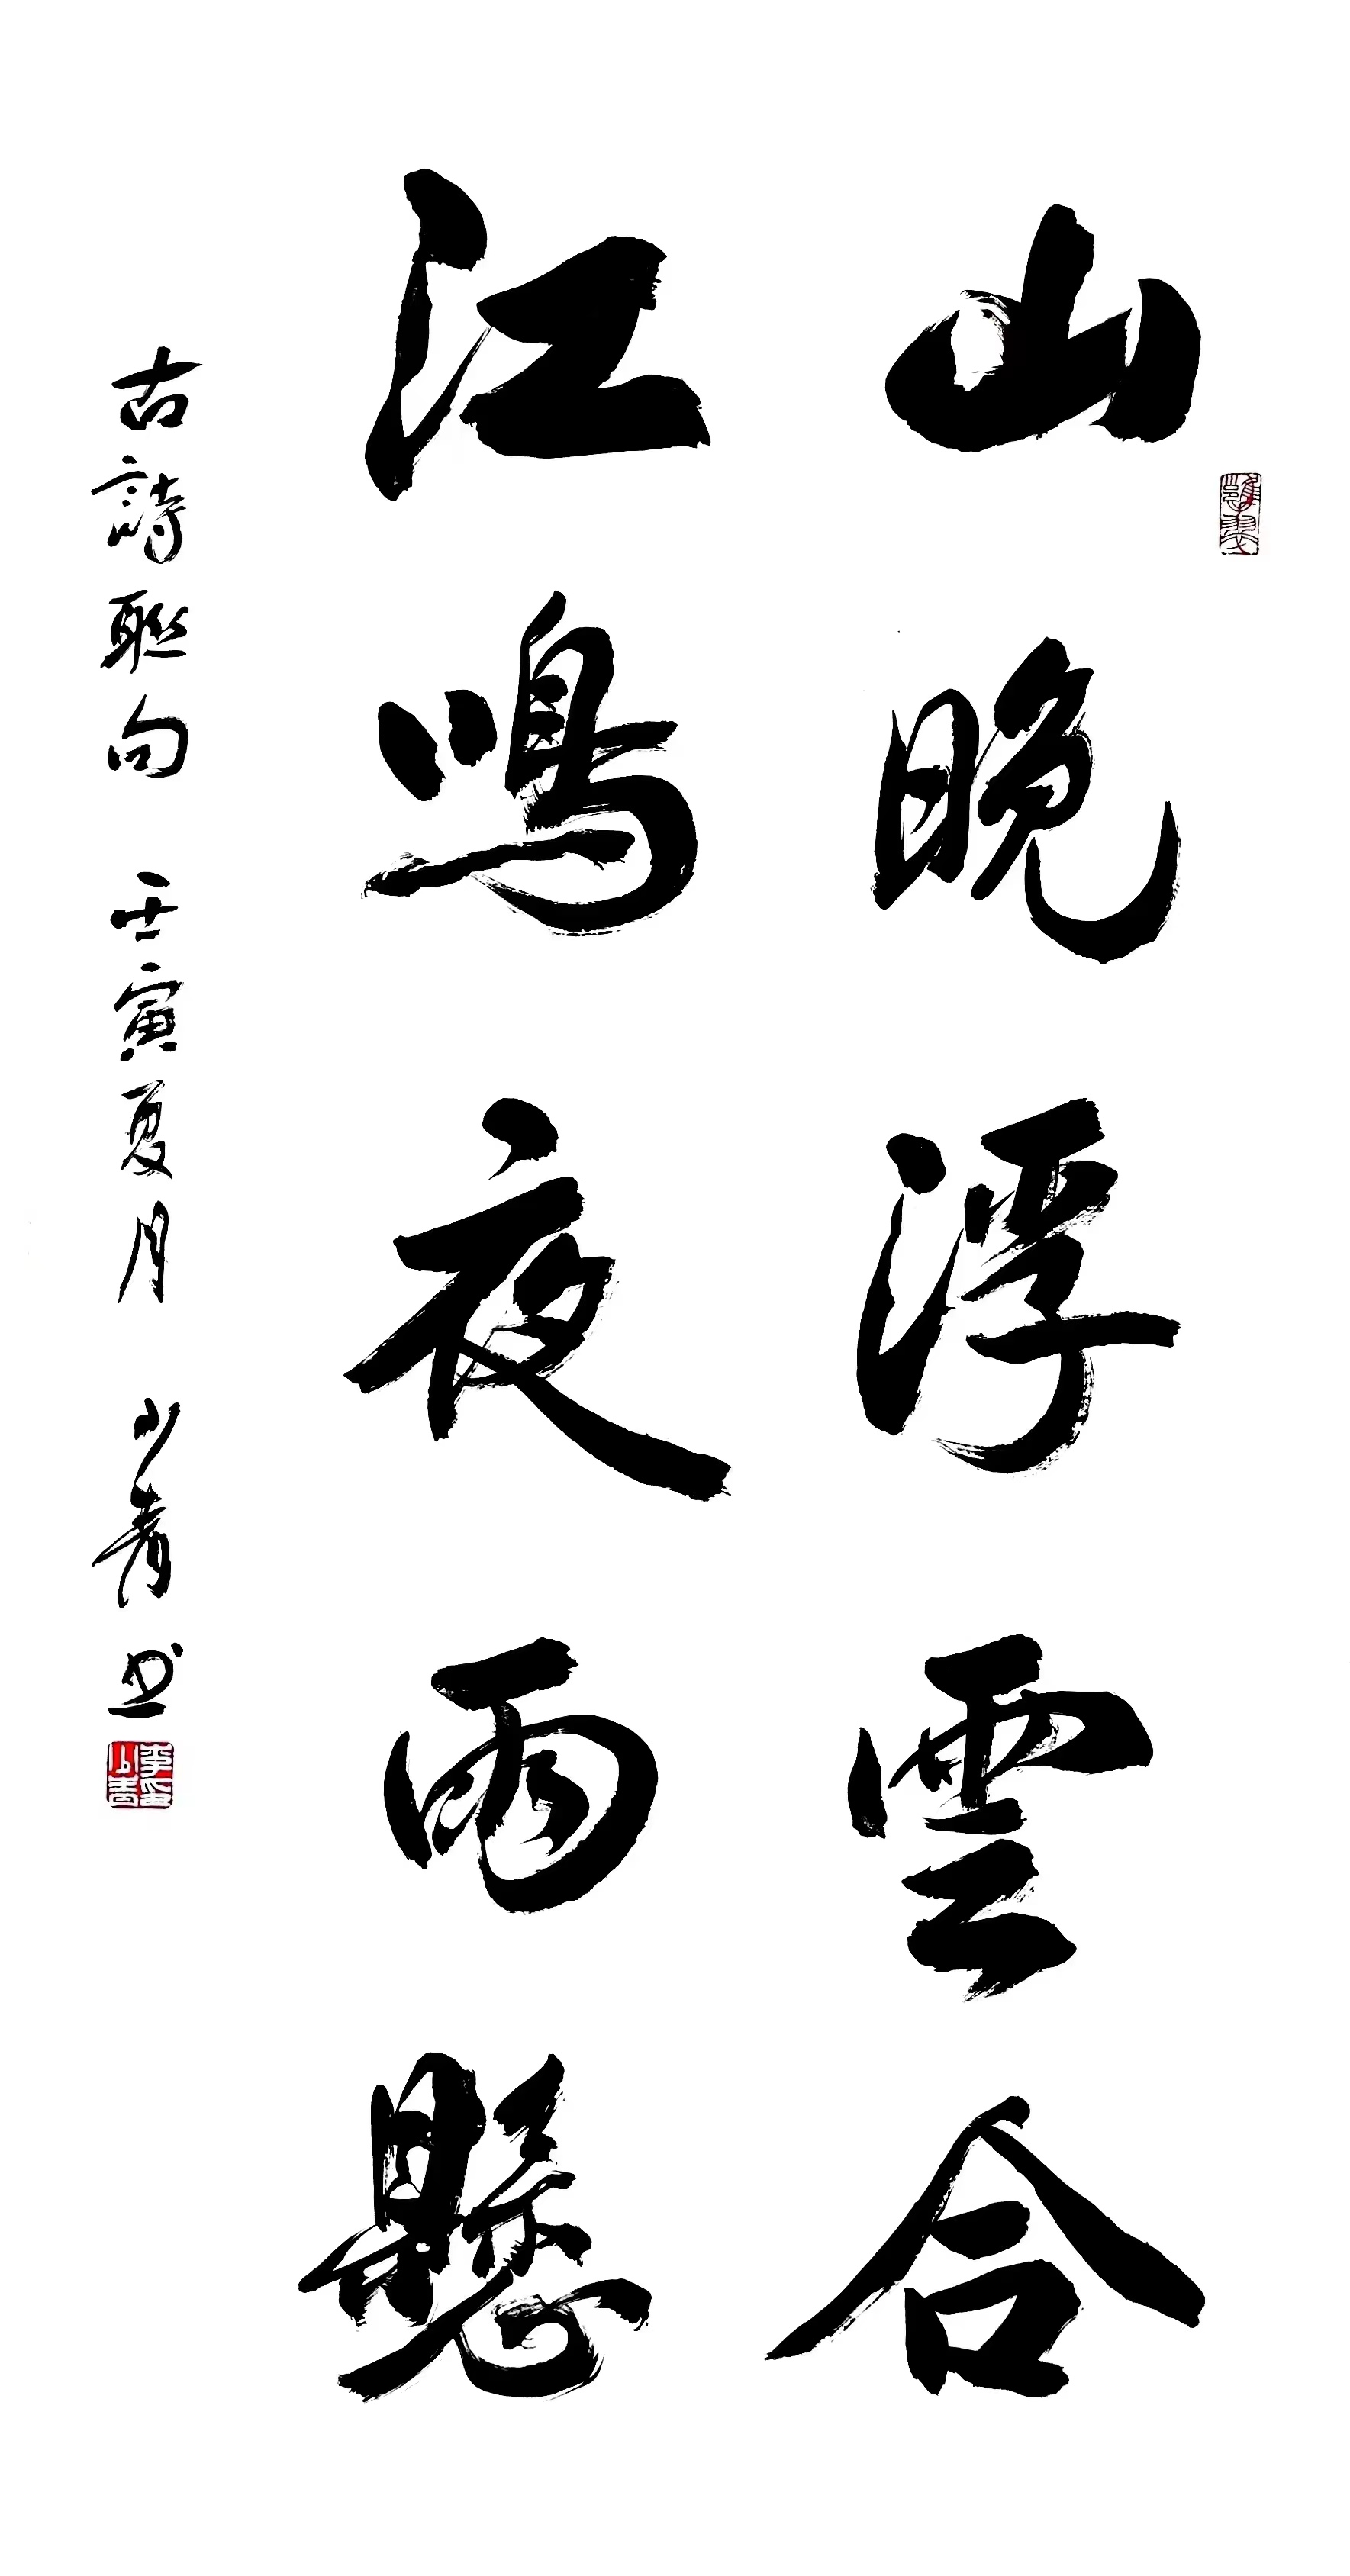 山晚浮雲合
江鳴夜雨懸
古詩聯句 壬寅夏月 少青书